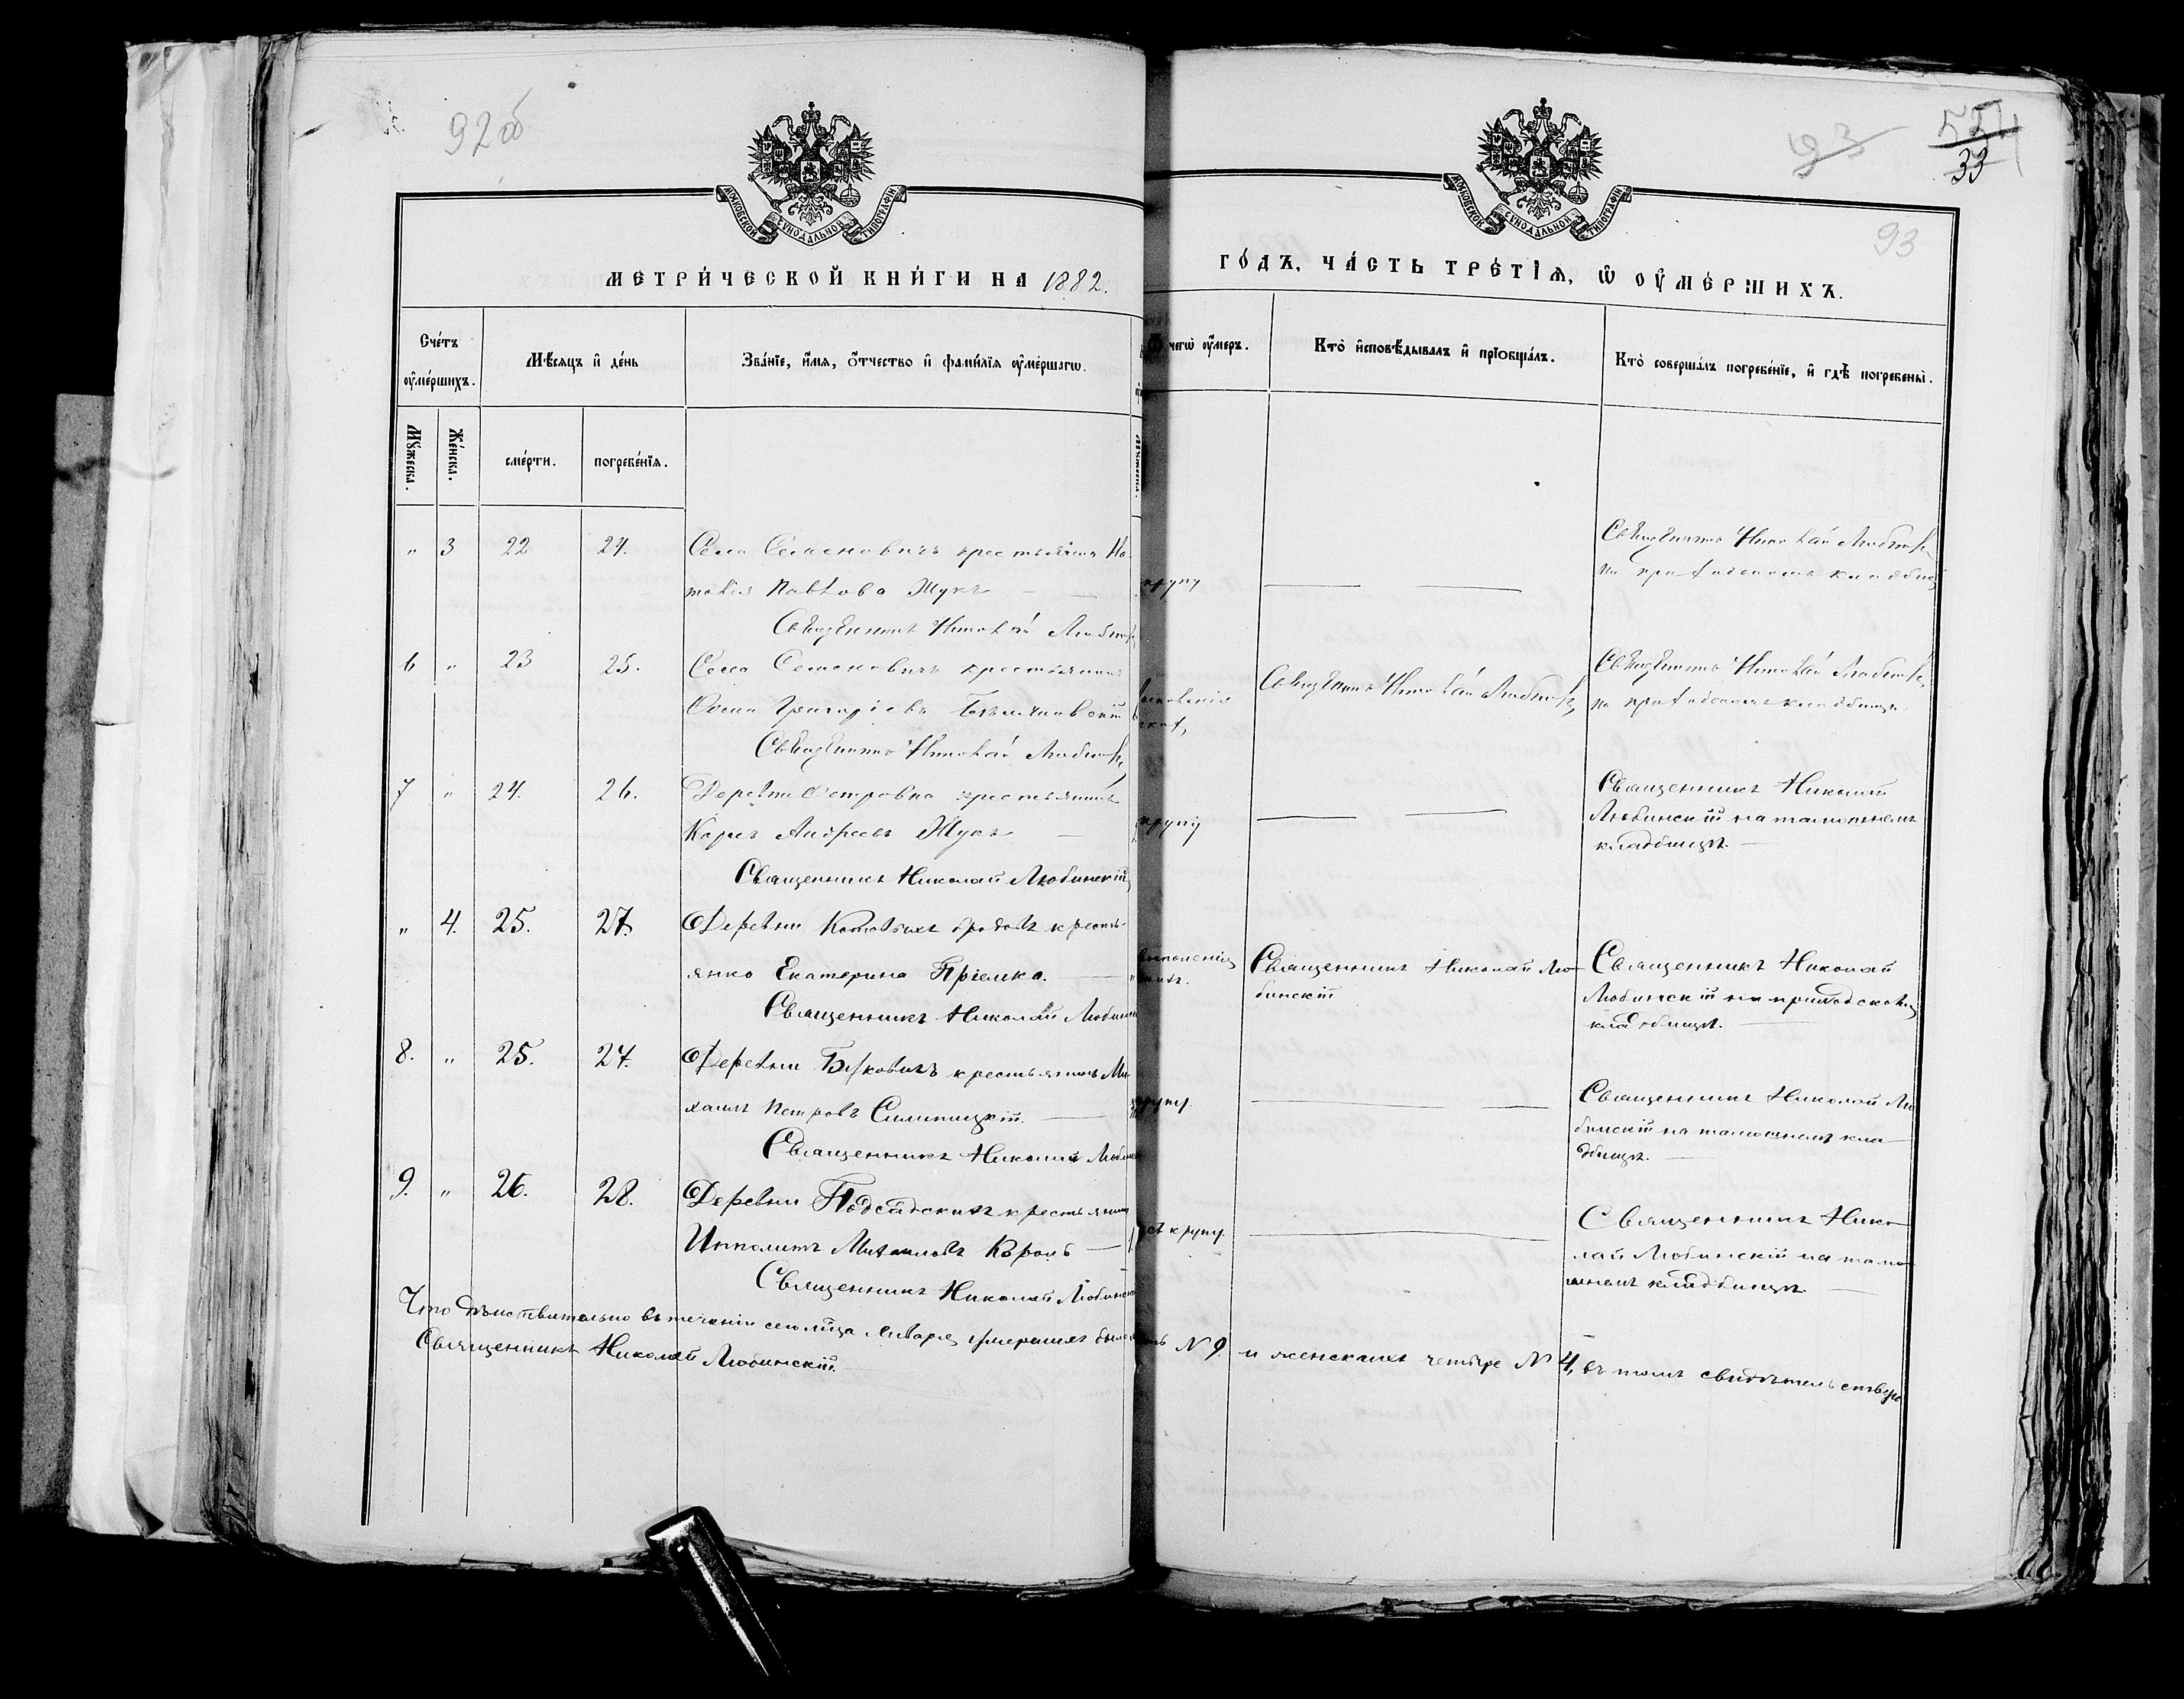 92об
93
554
33
93
МОСКОВСКОЙ СУНОДАЛЬНОЙ ТИПОГРАФІИ
МОСКОВСКОЙ СУНОДАЛЬНОЙ ТИПОГРАФІИ
МЕТРИ́ЧЕСКОЙ КНИ́ГИ НА 1882.
ГО́ДЪ, ЧА́СТЬ ТРЕ́ТІѦ, Ѡ ОУ҆МЕ́РШИХЪ.
Сче́тъ оу҆ме́ршихъ.
Мѣ́сяцъ и҆ де́нь
Зва́нїе, и҆́мѧ, ѻ҆́тчество и҆ фами́лїѧ оу҆ме́ршагѡ.
чегѡ̀ оу҆́меръ.
Кто̀ и҆сповѣ́дывалъ и҆ прїѡбща́лъ.
Кто̀ соверша́лъ погребе́нїе, и҆ гдѣ̀ погребены̀.
Мꙋ́жеска.
Же́нска.
сме́рти.
погребе́нїѧ.
" 3 22 24. Села Семеновичъ крестьянка На-
талія Павлова Жукъ
Священникъ Николай Любинскій
крупу
Священникъ Николай Любинскій
на приходскомъ кладбищѣ
6 " 23 25. Села Семеновичъ крестьянинъ
Григоріевъ
Священникъ Николай Любинскій
Священникъ Николай Любинскій
Священникъ Николай Любинскій
на приходскомъ кладбищѣ
7 " 24. 26. Деревни Островка крестьянинъ
Карпъ Андреевъ Жукъ
Священникъ Николай Любинскій
крупу
Священникъ Николай
Любинскій на тамошнемъ
кладбищѣ.
" 4. 25. 27. Деревни бродовъ кресть-
янка Екатерина Пріемко.
Священникъ Николай Любинскій
Священникъ Николай Лю-
бинскій
Священникъ Николай
Любинскій на приходскомъ
кладбищѣ.
8. " 25. 27. Деревни крестьянинъ Ми-
хаилъ Петровъ
Священникъ Николай
крупу.
Священникъ Николай Лю
бинскій на тамошнемъ кла-
дбищѣ.
9. " 26. 28. Деревни Подсадскихъ крестьянинъ
Ипполитъ Михаиловъ Король
Священникъ Николай Любинскій
крупу.
Священникъ Нико-
лай Любинскій на тамо-
шнемъ кладбищѣ
Что дѣйствительно въ теченіи сего м-ца Января умершихъ было
№ 9. и женскихъ четыре № 4, въ томъ свидѣтельствую
Священникъ Николай Любинскій.